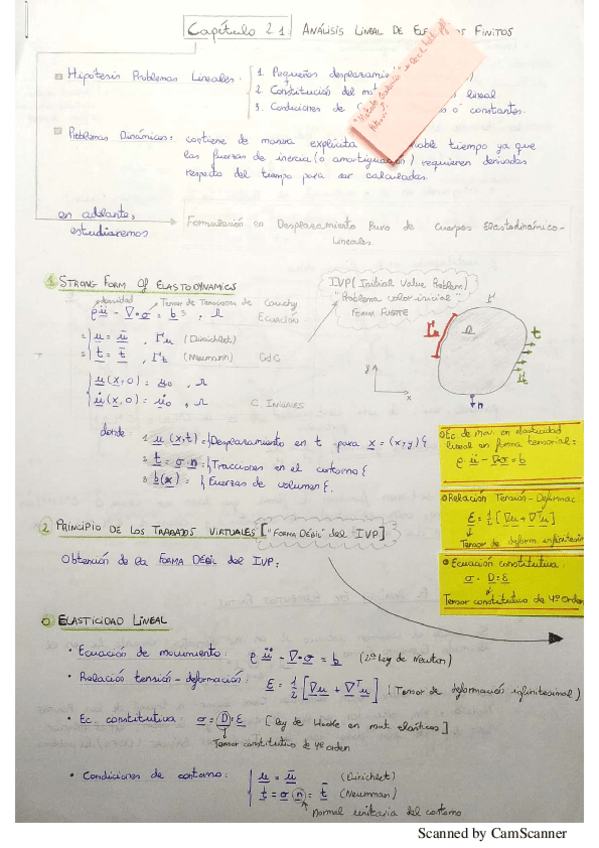 Capítulo 2.1: ANÁLISIS LINEAL DE FINITOS
Hipótesis Problemas Lineales.
1. Pequeños
2. Constitución del lineal
3. Condiciones de o constantes.
Problemas Dinámicos: contiene de manera explícita tiempo ya que
las fuerzas de inercia (o amortiguación) requieren derivadas
respecto del tiempo para ser calculadas.
en adelante,
estudiaremos
Formulación en Desplazamiento Puro de Cuerpos Elastodinámico-
Lineales.
1. STRONG FORM OF ELASTODYNAMICS
densidad Tensor de Tensiones de Cauchy
ρü - ∇·σ = b, Ω Ecuación
u = ū, Γu (Dirichlet)
t = t̄, Γt (Neumann) CdC
u(x,0) = u₀, Ω
u̇(x,0) = u̇₀, Ω C. Iniciales
IVP (Initial Value Problem)
"Problema valor inicial"
FORMA FUERTE
Γ
Γu
Ω
t
Γt
n
y
x
donde: 1 u(x,t) = {Desplazamiento en t para x = (x,y)}.
2 t = σ·n = {Tracciones en el contorno}
3 b(x) = {Fuerzas de volumen}.
Ec. de mov. en elasticidad
lineal en forma tensorial:
ρ·ü - ∇·σ = b
Relación Tensión-Deformac
E = 1/2 [∇u + ∇ᵀu]
Tensor de deform infinitesim
Ecuación constitutiva:
σ = D:E
Tensor constitutivo de 4º Orden
2. PRINCIPIO DE LOS TRABAJOS VIRTUALES ["FORMA DÉBIL" del IVP]
Obtención de la FORMA DÉBIL del IVP:
0) ELASTICIDAD LINEAL
• Ecuación de movimiento: ρü - ∇·σ = b (2ª Ley de Newton)
• Relación tensión-deformación: E = 1/2 [∇u + ∇ᵀu] (Tensor de deformación infinitesimal)
• Ec. constitutiva: σ = D:E [Ley de Hooke en mat. elásticos]
Tensor constitutivo de 4º orden
• Condiciones de contorno: u = ū (Dirichlet)
t = σ·n = t̄ (Neumman)
Normal unitaria del contorno
Scanned by CamScanner